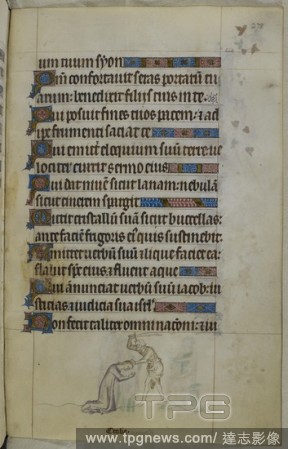 uum tuum syon
Qm̄ confortauit seras portarum tu
arum: benedixit filiis tuis in te
Qui posuit fines tuos pacem: & ad
ipe frumenti saciat te
Qui emittit eloquium suū terre: ue
lociter currit sermo eius
Qui dat niuē sicut lanam: nebulā
sicut cinerem spargit
Mittit cristallū suā sicut bucellas:
ante faciē frigoris eī quis sustinebit
Emittet uerbū suū & lique faciet ea:
flabit sps̄ eius & fluent aque
Qui annunciat uerbū suū iacob: iu
sticias & iudicia sua isrl̄
Non fecit taliter omni nacōni: & iu
TPG
www.tpgnews.com/達志影像